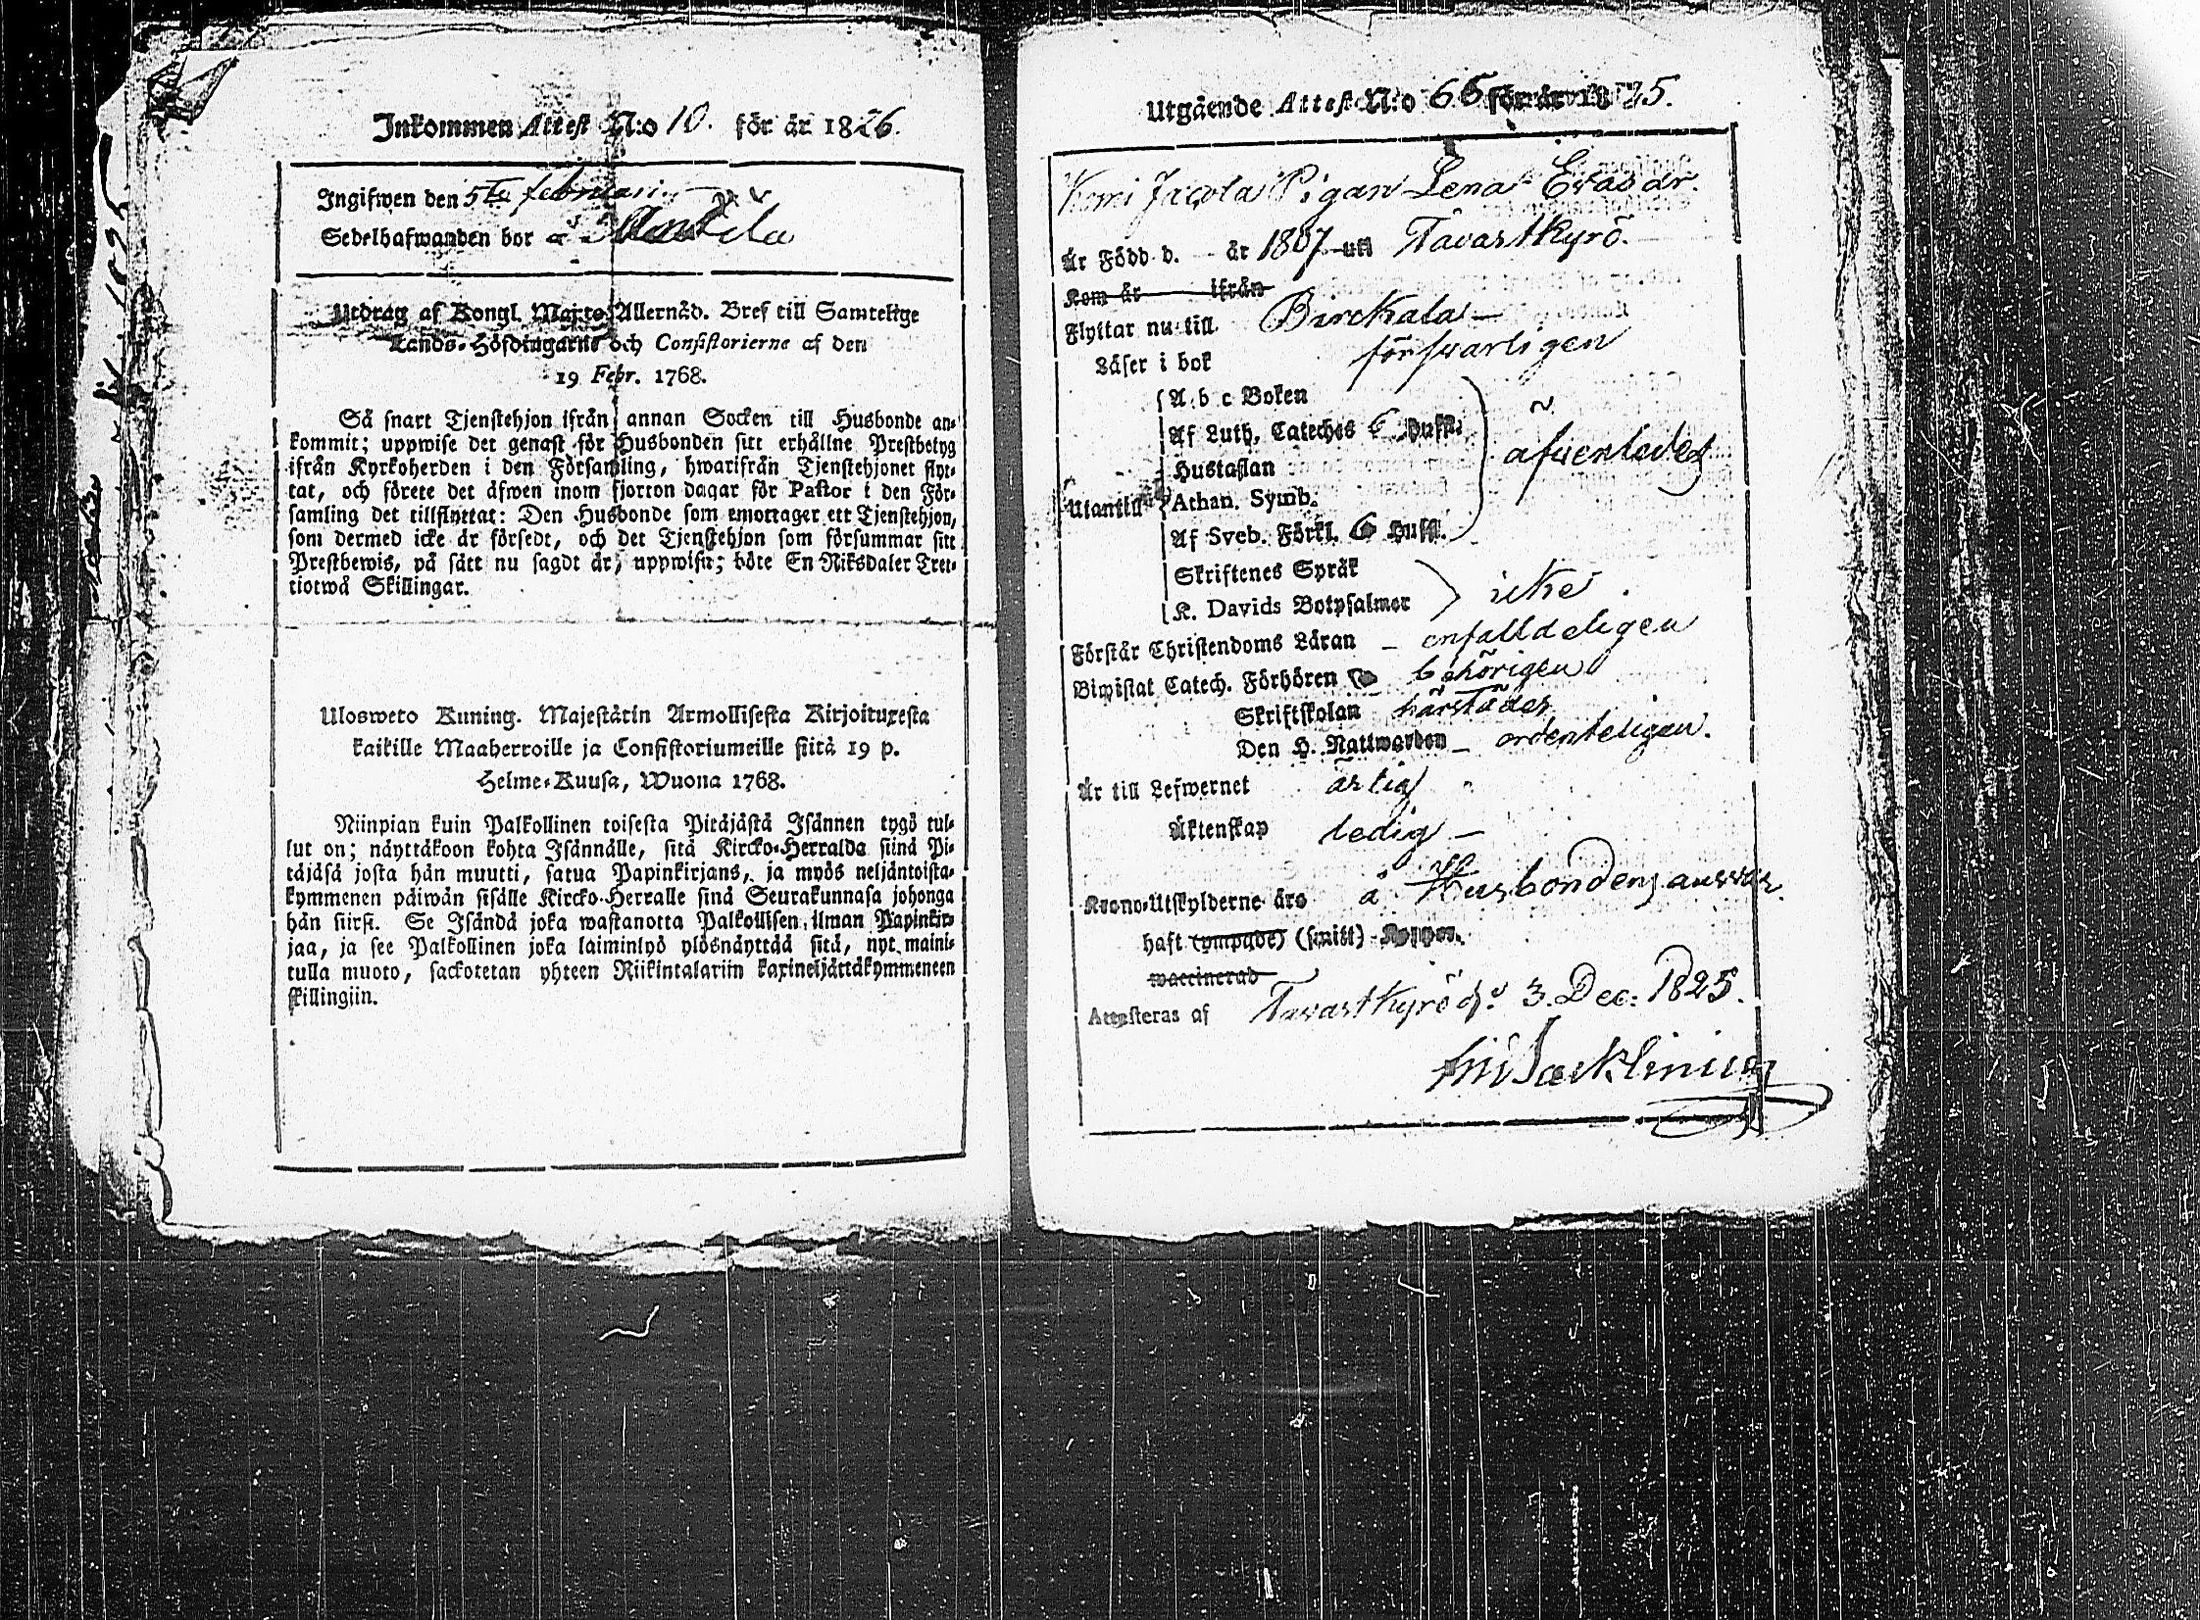 Inkommen Attest N:o 10. för år 1826.
Ingifwen den 5te februari
Sedelhafwanden bor
Utdrag af Kongl. Maj:ts Allernåd. Bref till Samtelige
Lands-Höfdingarne och Consistorierne af den
19 Febr. 1768.
Så snart Tjenstehjon ifrån annan Socken till Husbonde an-
kommit; uppwise det genast för Husbonden sitt erhållne Prestbetyg
ifrån Kyrkoherden i den Församling, hwarifrån Tjenstehjonet flyt-
tat, och förete det äfwen inom fjorton dagar för Pastor i den För-
samling det tillflyttat: Den Husbonde som emottager ett Tjenstehjon,
som dermed icke är försedt, och det Tjenstehjon som försummar sitt
Prestbewis, på sätt nu sagdt är, uppwisa; böte En Riksdaler Tret-
tiotwå Skillingar.
Ulosweto Kuning. Majestätin Armollisesta Kirjoituxesta
kaikille Maaherroille ja Consistoriumeille siitä 19 p.
Helme-Kuusa, Wuona 1768.
Niinpian kuin Palkollinen toisesta Pitäjästä Isännen tygö tul-
lut on; näyttäkoon kohta Isännälle, sitä Kircko-Herralda siinä Pi-
täjäsä josta hän muutti, satua Papinkirjans, ja myös neljäntoista-
kymmenen päiwän sisälle Kircko-Herralle sinä Seurakunnasa johonga
hän siirsi. Se Isändä joka wastanotta Palkollisen ilman Papinkir-
jaa, ja see Palkollinen joka laiminlyö ylösnäyttää sitä, nyt maini-
tulla muoto, sackotetan yhteen Riikintalariin kaxineljättäkymmeneen
skillingiin.
Utgående Attest N:o 66 för år 1825.
Komi Jacola Pigan Lena Evas dr.
Är Född d. - år 1807 uti Tavastkyrö.
Kom år ifrån
Flyttar nu till Birckala -
Läser i bok försvarligen
A b c Boken
Af Luth. Cateches 6 Huft.
Hustaflan
Utantill Athan. Symb.
Af Sveb. Förkl. 6 Huft.
afvenledes
Skriftenes Språk
K. Davids Botpsalmer icke.
Förstår Christendoms Läran - enfalldeligen
Biwistat Catech. Förhören behörigen
Skriftskolan härstädes
Den H. Nattwarden - ordenteligen.
Är till Lefwernet artig
Äktenskap ledig -
Krono-Utskylderne äro å Husbondens ansvar.
haft (ympade) (smitt) Koppor.
waccinerad
Attesteras af Tavastkyrö d. 3. Dec: 1825.